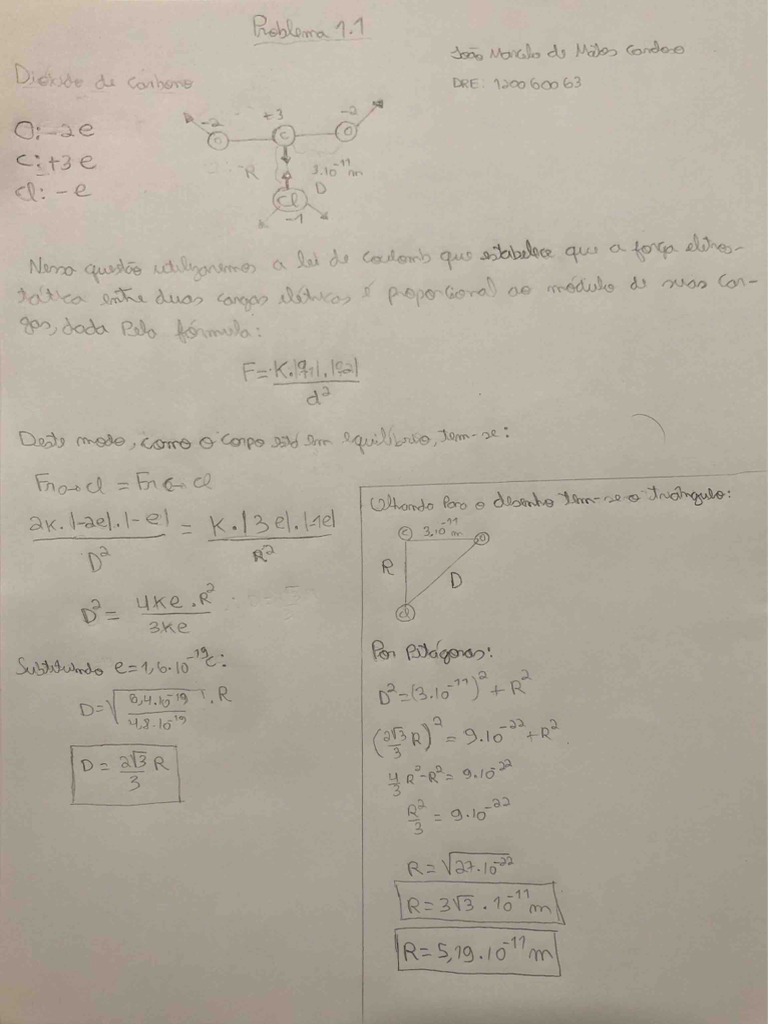 Problema 1.1
João Marcelo de Matos Cardoso
DRE: 120060063
Dióxido de Carbono
O: -2e
C: +3e
Cl: -e
-2 +3 -2
O C O
R 3.10^-11 m
D
Cl
-1
Nessa questão utilizaremos a lei de Coulomb que estabelece que a força eletros-
tática entre duas cargas elétricas é proporcional ao módulo de suas car-
gas, dada pela fórmula:
F = K.|q1|.|q2|
d²
Deste modo, como o corpo está em equilíbrio, tem-se:
= 
2K.|-2e|.|-e| = K.|3e|.|-1e|
D² R²
D² = 4Ke.R²
3Ke
Substituindo e=1,6.10^-19 C:
D = √ 6,4.10^-19 . R
4,8.10^-19
D = 2√3 R
3
Olhando para o desenho tem-se o triângulo:
C 3.10^-11 m O
R D
Cl
Por Pitágoras:
D² = (3.10^-11)² + R²
(2√3 R)² = 9.10^-22 + R²
3
4 R² - R² = 9.10^-22
3
R² = 9.10^-22
3
R = √27.10^-22
R = 3√3 . 10^-11 m
R = 5,19.10^-11 m